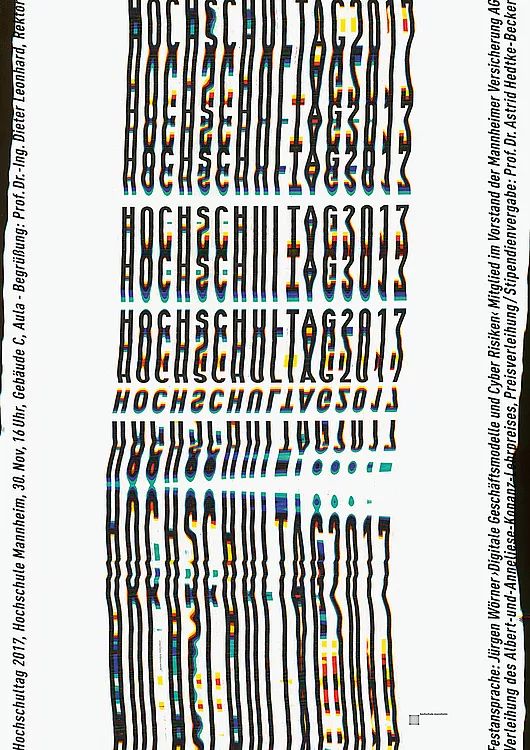 Hochschultag 2017, Hochschule Mannheim, 30. Nov, 16 Uhr, Gebäude C, Aula - Begrüßung: Prof. Dr.-Ing. Dieter Leonhard, Rektor
HOCHSCHULTAG2017
HOCHSCHULTAG2017
HOCHSCHULTAG2017
HOCHSCHULTAG2017
HOCHSCHULTAG2017
HOCHSCHULTAG2017
HOCHSCHULTAG2017
HOCHSCHULTAG2017
HOCHSCHULTAG2017
hochschule mannheim
Festansprache: Jürgen Wörner ›Digitale Geschäftsmodelle und Cyber Risiken‹ Mitglied im Vorstand der Mannheimer Versicherung AG
Verleihung des Albert-und-Anneliese-Konanz-Lehrpreises, Preisverleihung/Stipendienvergabe: Prof. Dr. Astrid Hedtke-Becker